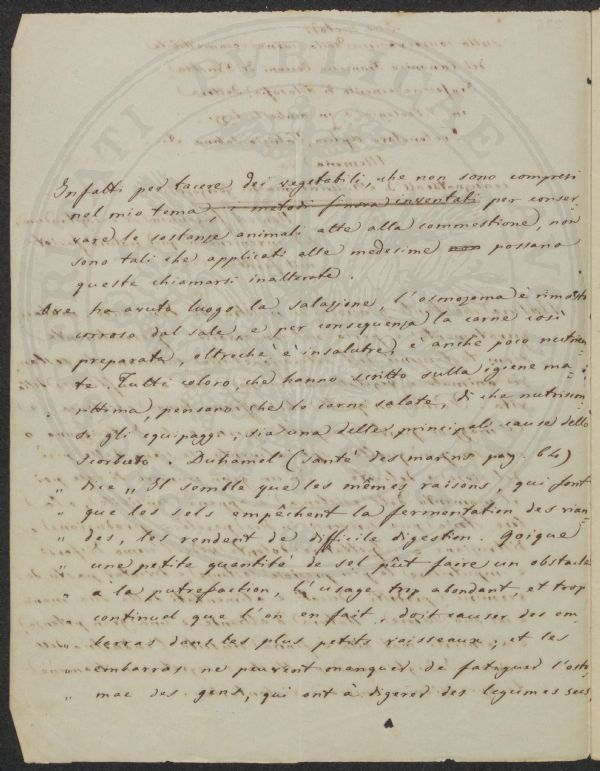 Infatti per tacere dei vegetabili, che non sono compresi
nel mio tema, i metodi finora inventati per conser-
vare le sostanze animali atte alla commestione, non
sono tali che applicati alle medesime non possano
queste chiamarsi inalterate.
Ove ha avuto luogo la salazione, l'osmazoma è rimasto
corroso dal sale, e per conseguenza la carne così
preparata, oltrechè è insalubre, è anche poco nutrien-
te. Tutti coloro, che hanno scritto sulla igiene ma-
rittima, pensano che le carni salate, di che nutriscon-
si gli equipaggi, sia una delle principali cause dello
Scorbuto. Duhamel (santé des marins pag. 64)
„ dice „ Il semble que les mêmes raisons, qui font
„ que les sels empêchent la fermentation des vian-
„ des, les rendent de difficile digestion. Qoique
„ une petite quantité de sel peut faire un obstacle
„ a la putrefaction, l'usage trop abondant, et trop
„ continuel que l'on en fait, doit causer des em-
„ berras dans les plus petits vaisseaux; et les
„ embarras ne peuvent manquer de fatiguer l'esto-
„ mac des gens, qui ont à digerer des legumes secs